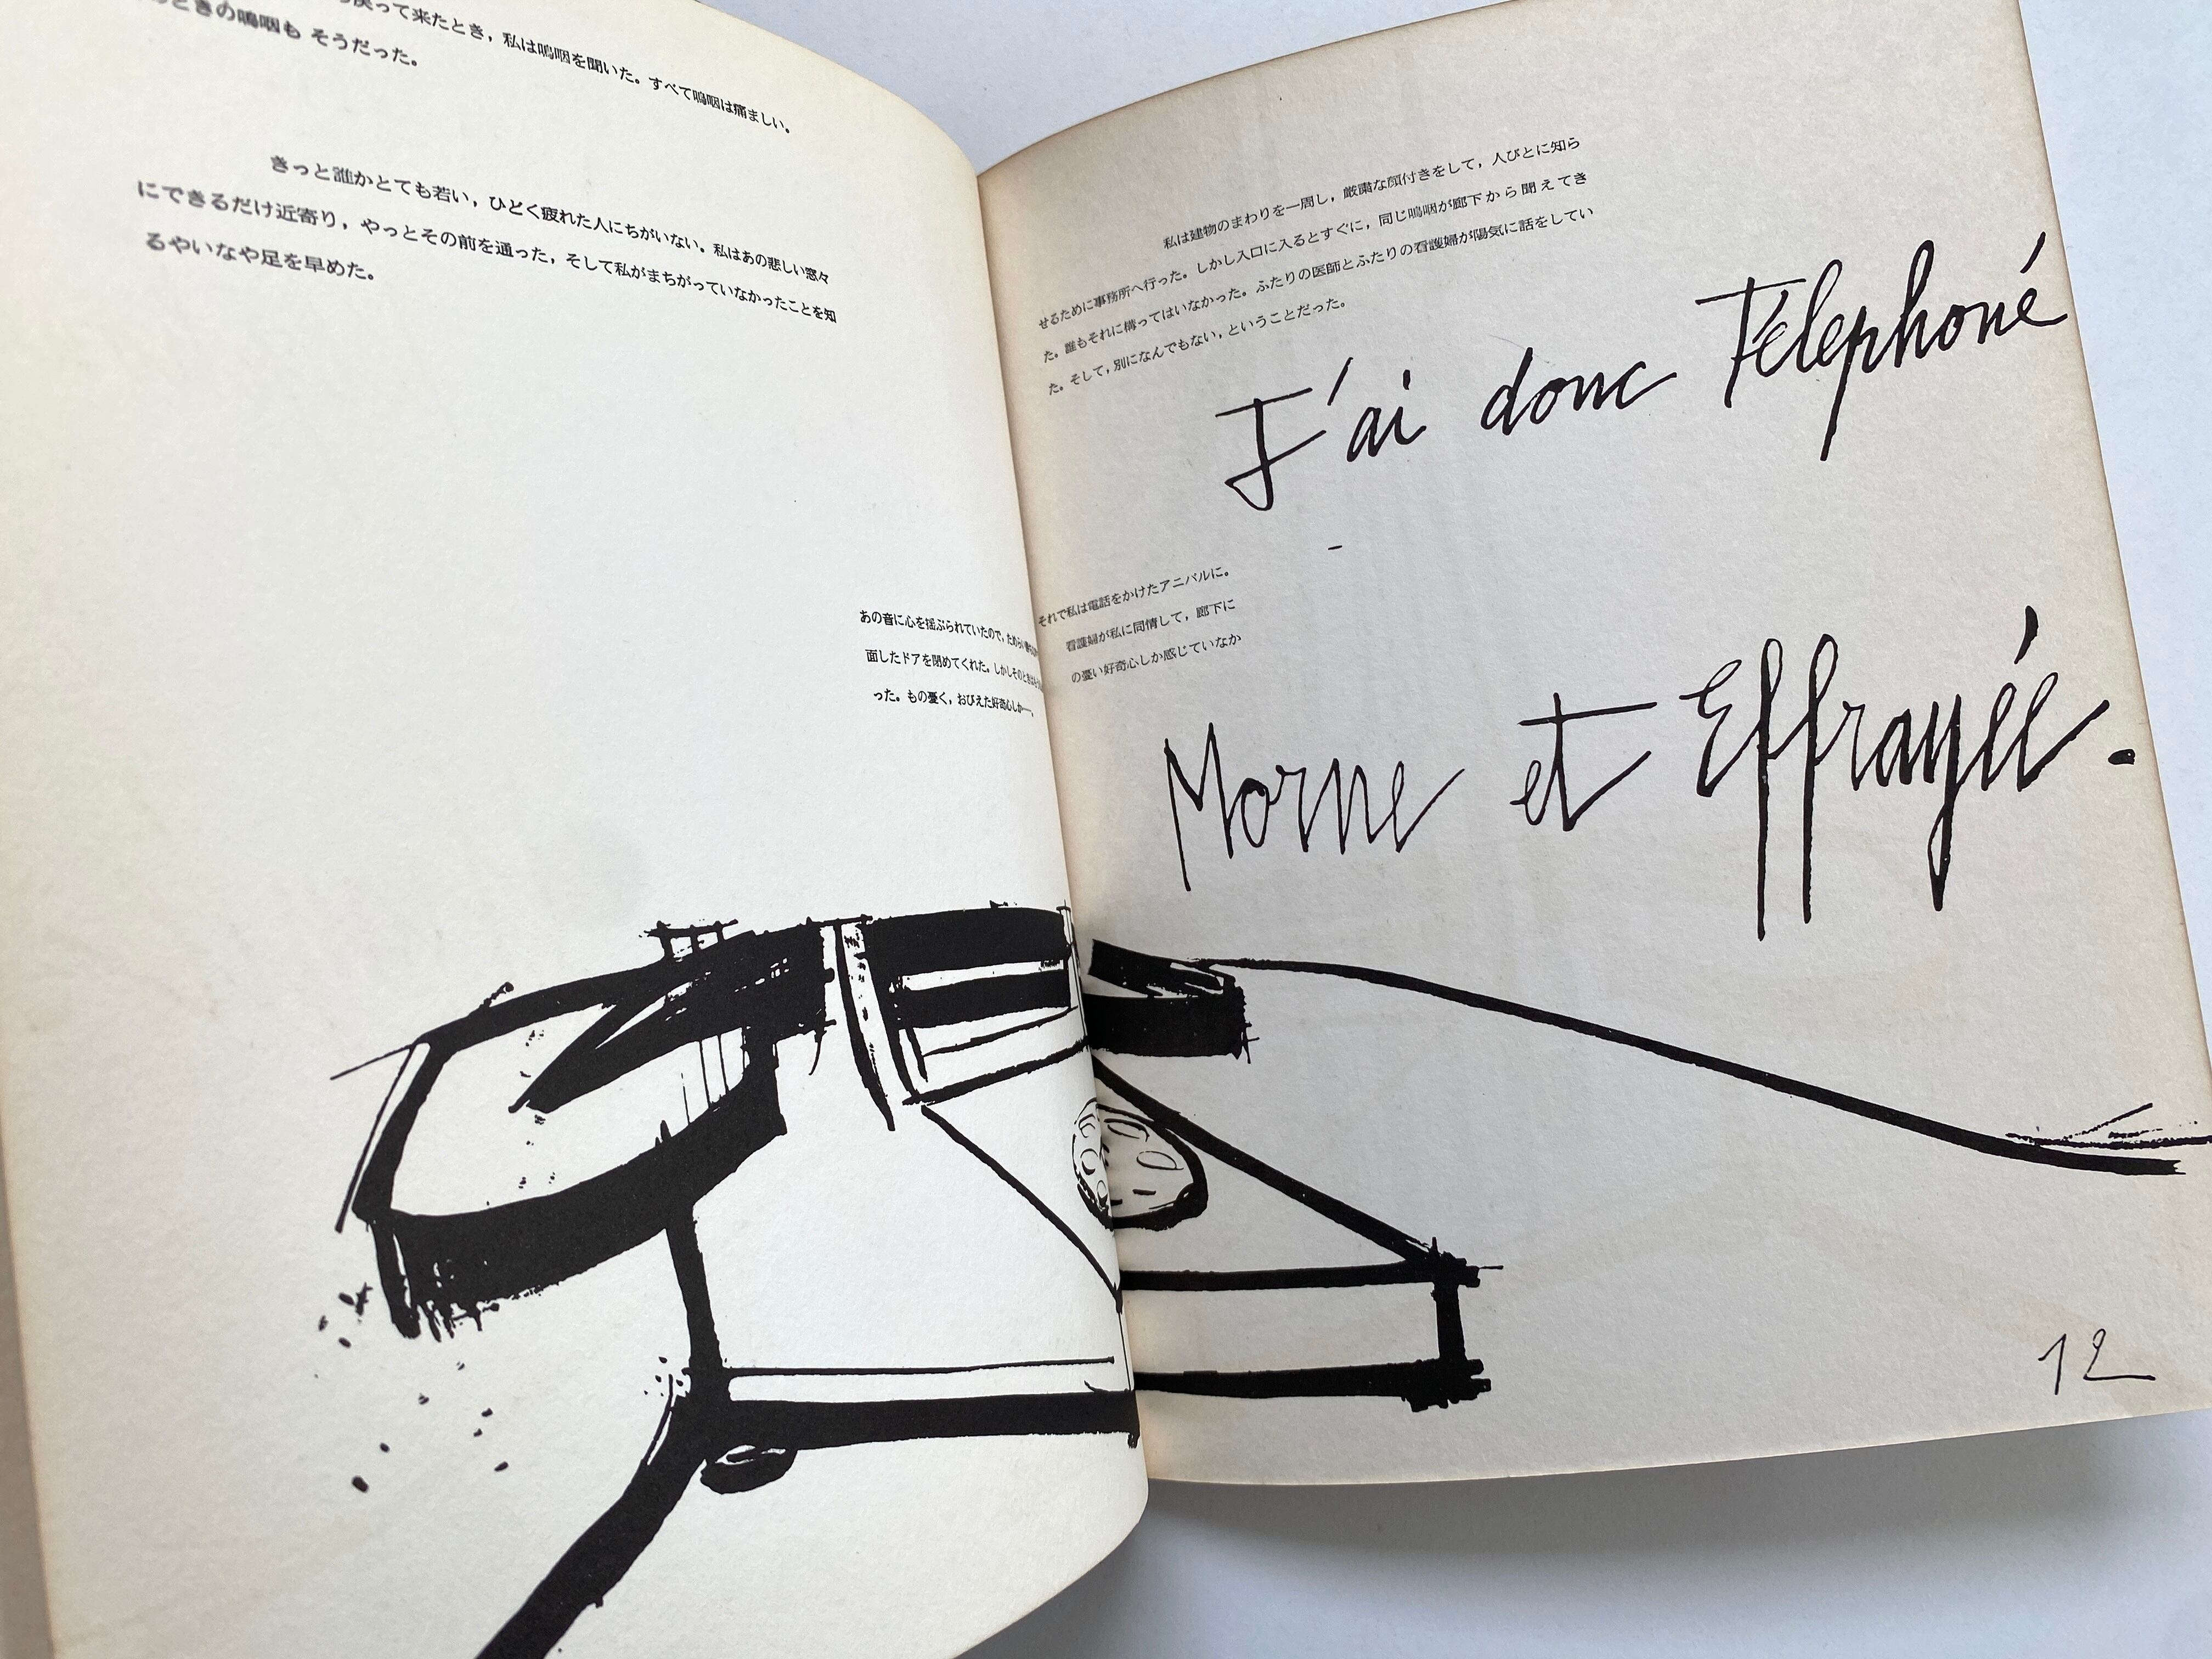 戻って来たとき，私は嗚咽を聞いた。すべて嗚咽は痛ましい。
ときの嗚咽も そうだった。
きっと誰かとても若い，ひどく疲れた人にちがいない。私はあの悲しい窓々
にできるだけ近寄り，やっとその前を通った，そして私がまちがっていなかったことを知
るやいなや足を早めた。
あの音に心を揺ぶられていたので，ためらい
面したドアを閉めてくれた。しかしそのときは
った。もの憂く，おびえた好奇心しか──。
私は建物のまわりを一周し，厳粛な顔付きをして，人びとに知ら
せるために事務所へ行った。しかし入口に入るとすぐに，同じ嗚咽が廊下から聞えてき
た。誰もそれに構ってはいなかった。ふたりの医師とふたりの看護婦が陽気に話をしてい
た。そして，別になんでもない，ということだった。
J'ai donc Téléphoné
それで私は電話をかけたアニバルに。
看護婦が私に同情して，廊下に
の憂い好奇心しか感じていなか
Morne et Effrayée.
12